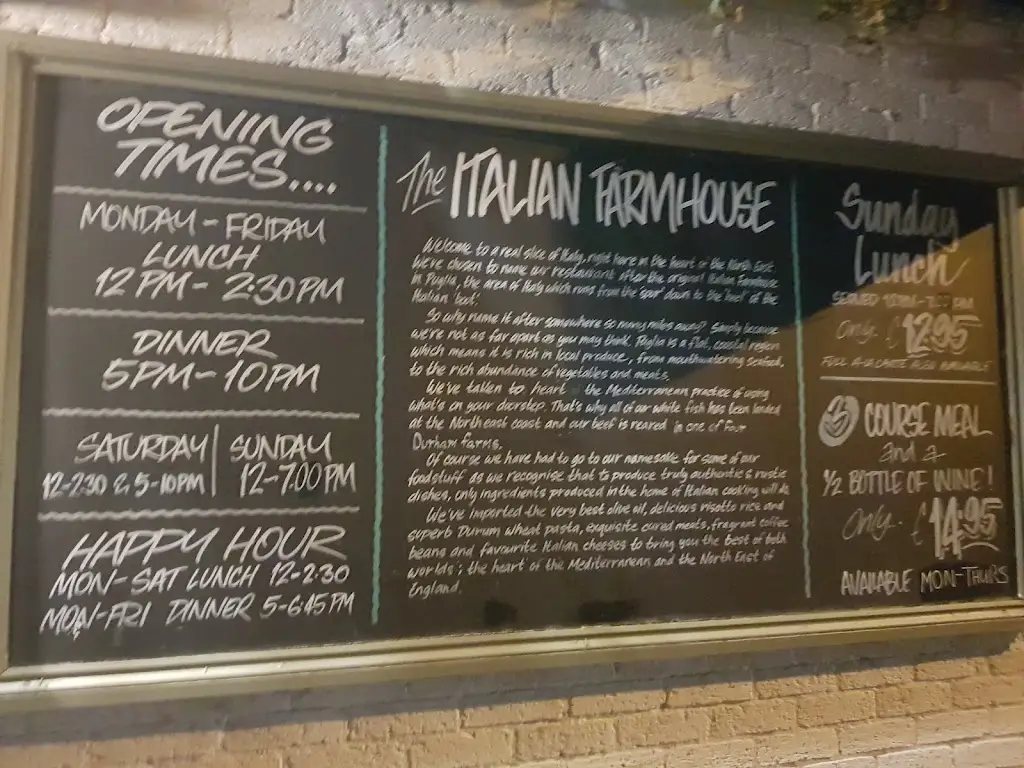 OPENING
TIMES....
MONDAY - FRIDAY
LUNCH
12PM - 2:30PM
DINNER
5PM - 10PM
SATURDAY
12-2:30 & 5-10PM
SUNDAY
12-7:00PM
HAPPY HOUR
MON-SAT LUNCH 12-2:30
MON-FRI DINNER 5-6:45PM
The ITALIAN FARMHOUSE
Welcome to a real slice of Italy, right here in the heart of the North East.
We've chosen to name our restaurant after the original Italian Farmhouse
in Puglia, the area of Italy which runs from the 'spur' down to the 'heel' of the
Italian 'boot'.
So why name it after somewhere so many miles away? Simply because
we're not as far apart as you may think. Puglia is a flat, coastal region
which means it is rich in local produce, from mouthwatering seafood,
to the rich abundance of vegetables and meats.
We've taken to heart the Mediterranean practice of using
what's on your doorstep. That's why all of our white fish has been landed
at the Northeast coast and our beef is reared in one of four
Durham farms.
Of course we have had to go to our namesake for some of our
foodstuff as we recognise that to produce truly authentic & rustic
dishes, only ingredients produced in the home of Italian cooking will do.
We've imported the very best olive oil, delicious risotto rice and
superb Durum wheat pasta, exquisite cured meats, fragrant coffee
beans and favourite Italian cheeses to bring you the best of both
worlds; the heart of the Mediterranean and the North East of
England.
Sunday
Lunch
SERVED 12PM - PM
Only £12.95
FULL A-LA-CARTE ALSO AVAILABLE
COURSE MEAL
and a
1/2 BOTTLE OF WINE!
Only £14.95
AVAILABLE MON-THURS